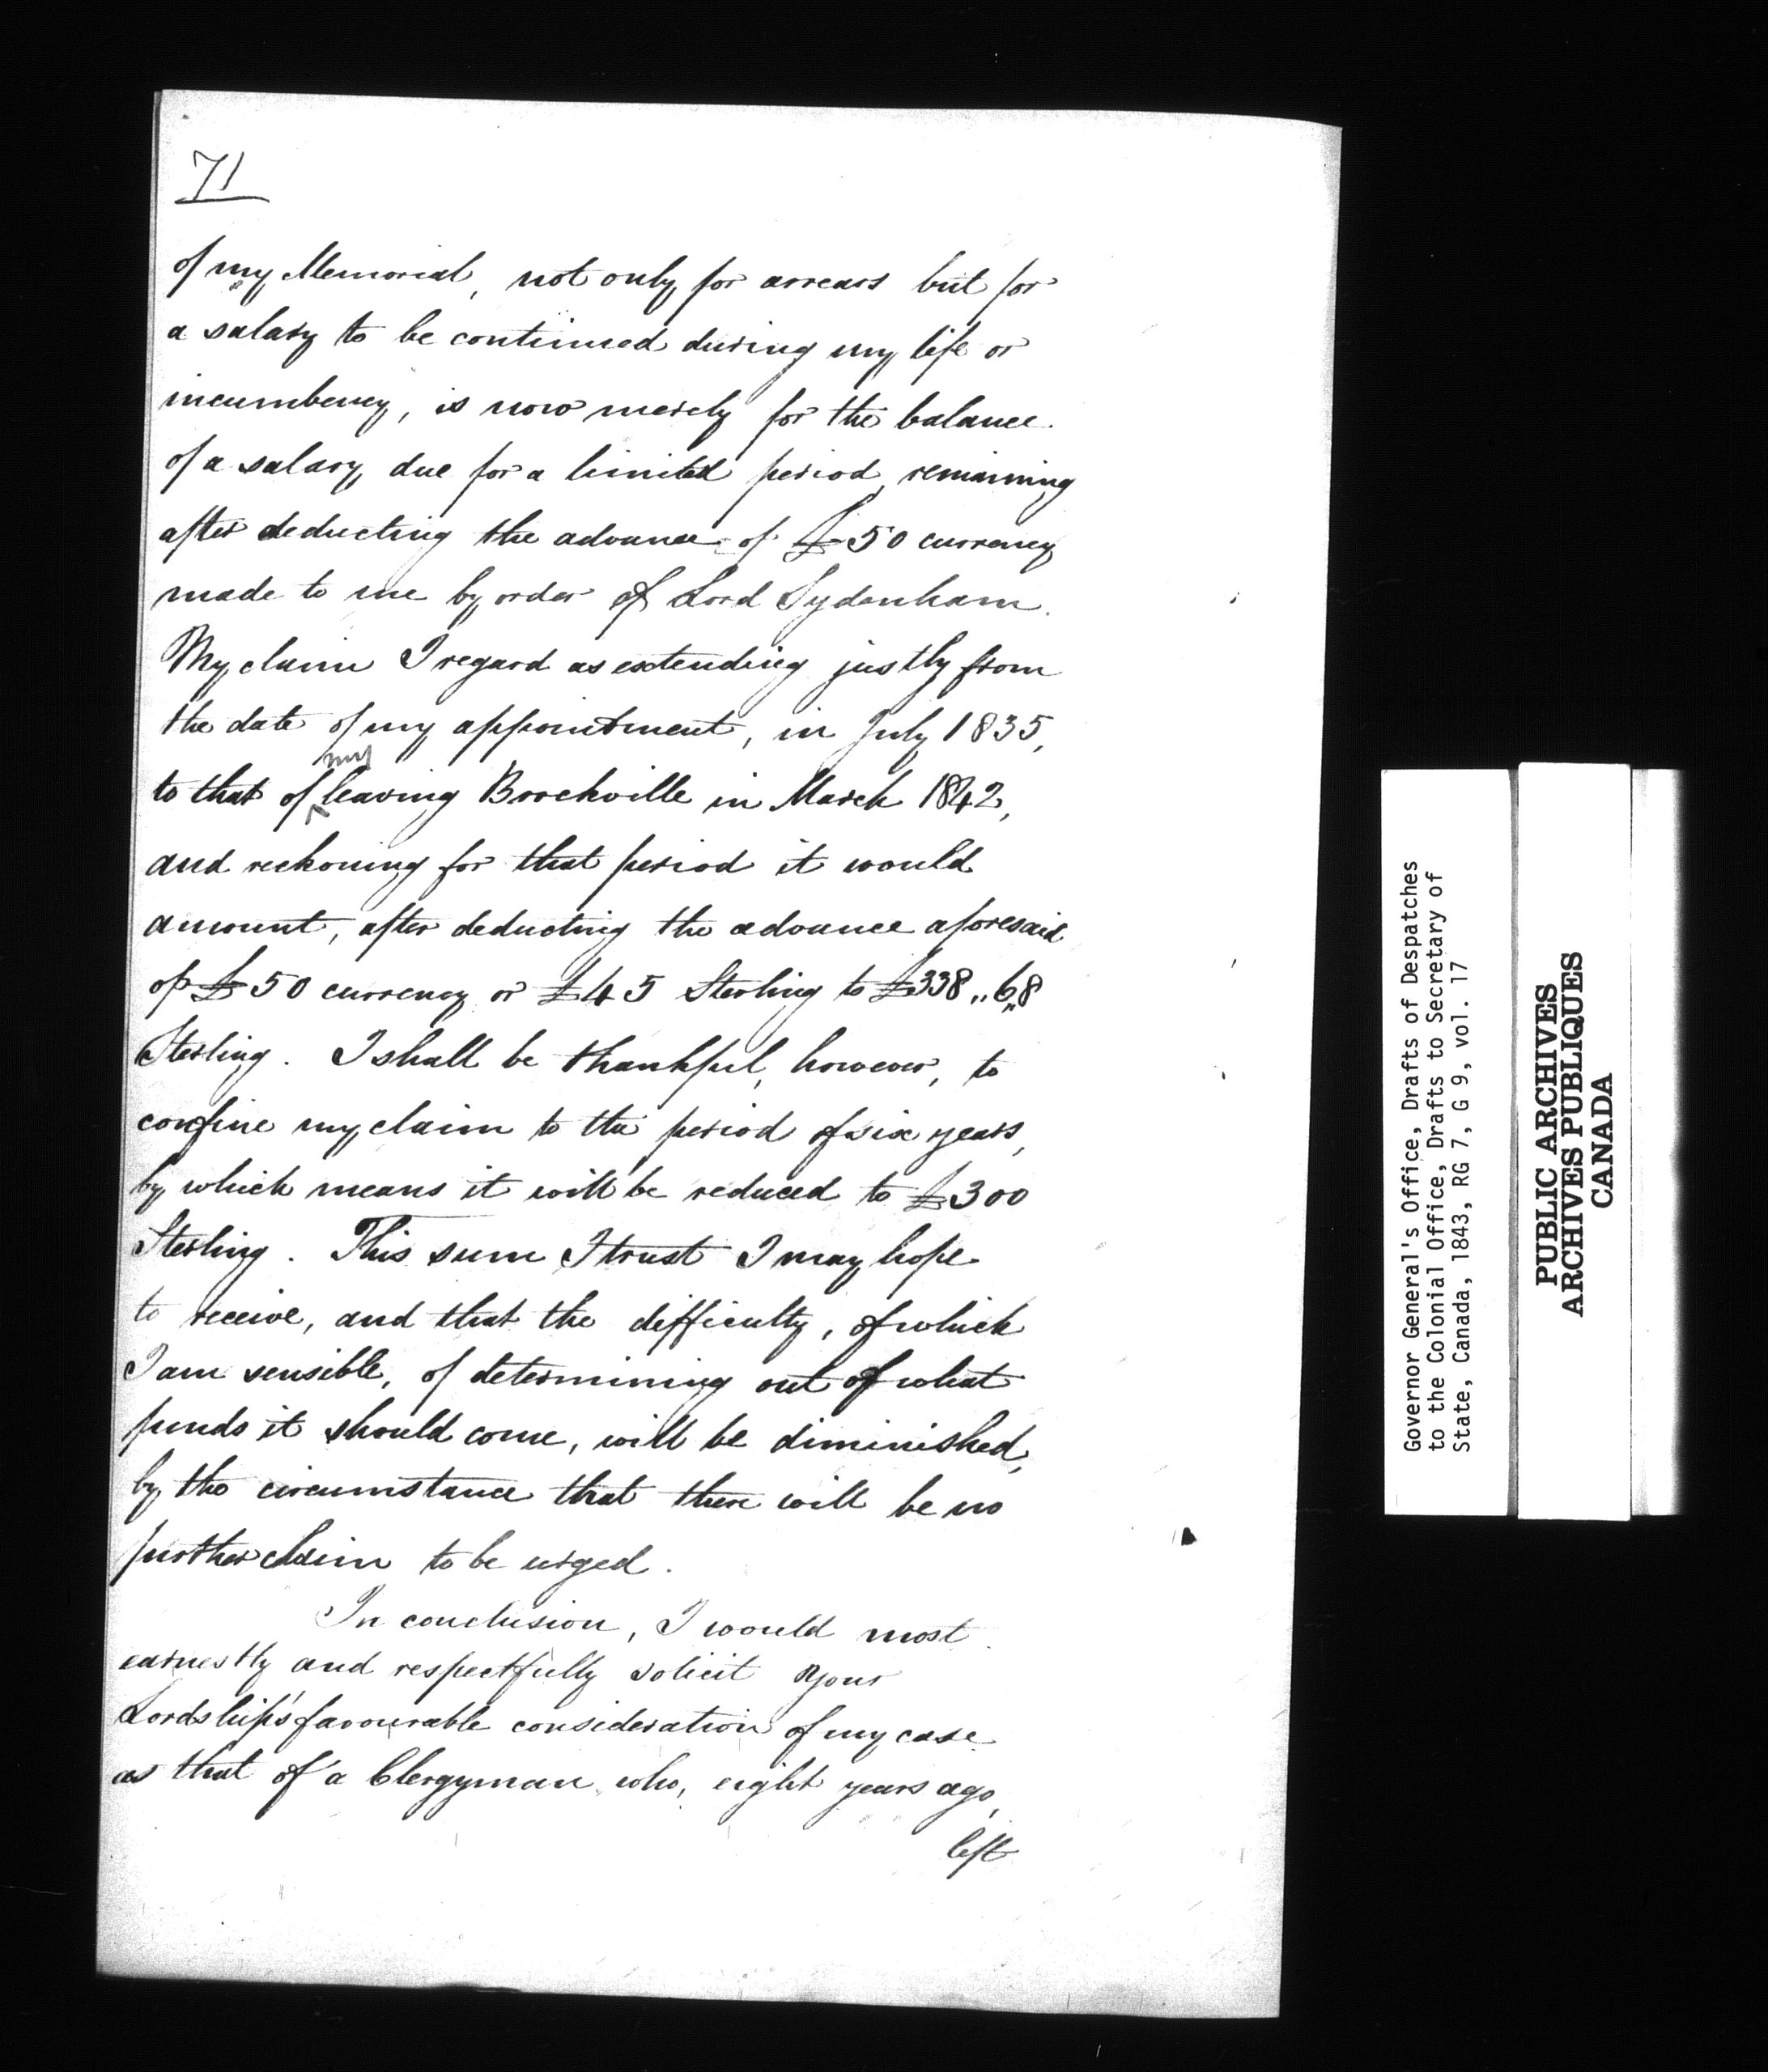 71
of my Memorial, not only for arrears but for
a salary to be continued during my life or
incumbency, is now merely for the balance
of a salary due for a limited period, remaining
after deducting the advance of £50 currency
made to me by order of Lord Sydenham.
My claim I regard as extending justly from
the date of my appointment, in July 1835,
my
to that of leaving Brockville in March 1842,
and reckoning for that period it would
amount, after deducting the advance aforesaid
of £50 currency or £45 Sterling to £338,,6,,8
Sterling. I shall be thankful, however, to
confine my claim to the period of six years,
by which means it will be reduced to £300
Sterling. This sum I trust I may hope
to receive, and that the difficulty, of which
I am sensible, of determining out of what
funds it should come, will be diminished,
by the circumstance that there will be no
further claim to be urged.
In conclusion, I would most
earnestly and respectfully solicit Your
Lordship's favourable consideration of my case
as that of a Clergyman who, eight years ago,
left
Governor General's Office, Drafts of Despatches
to the Colonial Office, Drafts to Secretary of
State, Canada, 1843, RG 7, G 9, vol. 17
PUBLIC ARCHIVES
ARCHIVES PUBLIQUES
CANADA